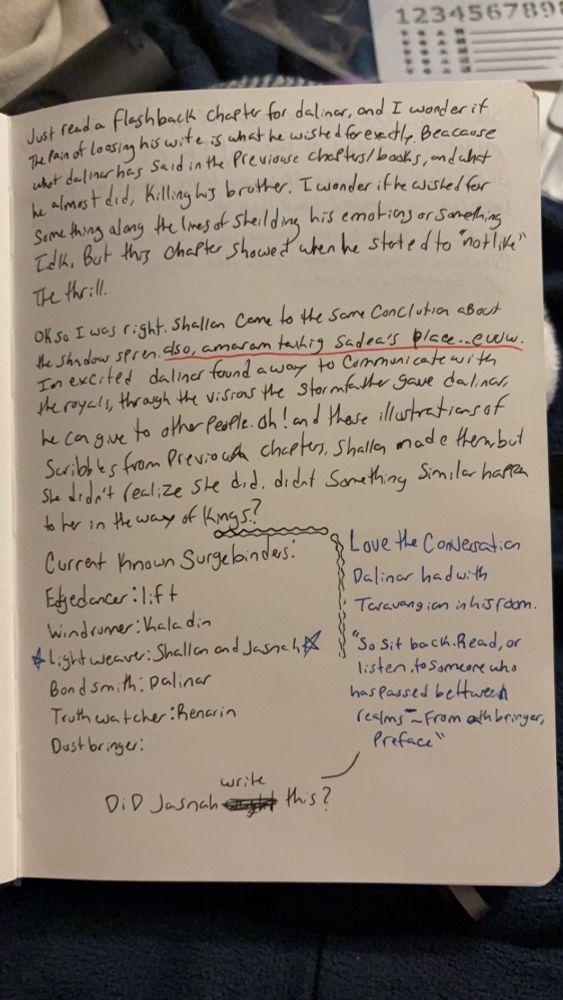 123456789
Just read a flashback chapter for dalinar, and I wonder if
The pain of loosing his wife is what he wished for exactly. Beacause
what dalinar has said in the Previouse chapters/books, and what
he almost did, Killing his brother. I wonder if he wished for
Something along the lines of sheilding his emotions or something
Idk. But this chapter showed when he stated to "not like"
The thrill.
OK so I was right. Shallan came to the same Conclution about
the shadow spren. also, amaram taking Sadea's place...eww.
I'm excited dalinar found a way to Communicate with
the royals, through the visions the Stormfather gave dalinar,
he can give to other people. oh! and those illustrations of
Scribbles from Previous chapters, Shallan made them, but
She didn't realize she did. didnt Something Similar happen
to her in the way of Kings?
Current Known Surgebinders:
Edgedancer: lift
Windrunner: Kaladin
Lightweaver: Shallan and Jasnah
Bondsmith: Dalinar
Truthwatcher: Renarin
Dustbringer:
Love the Conversation
Dalinar had with
Taravangian in his room.
"So sit back. Read, or
listen, to someone who
has passed between
realms" ~ From oathbringer,
Preface"
write
DiD Jasnah this?